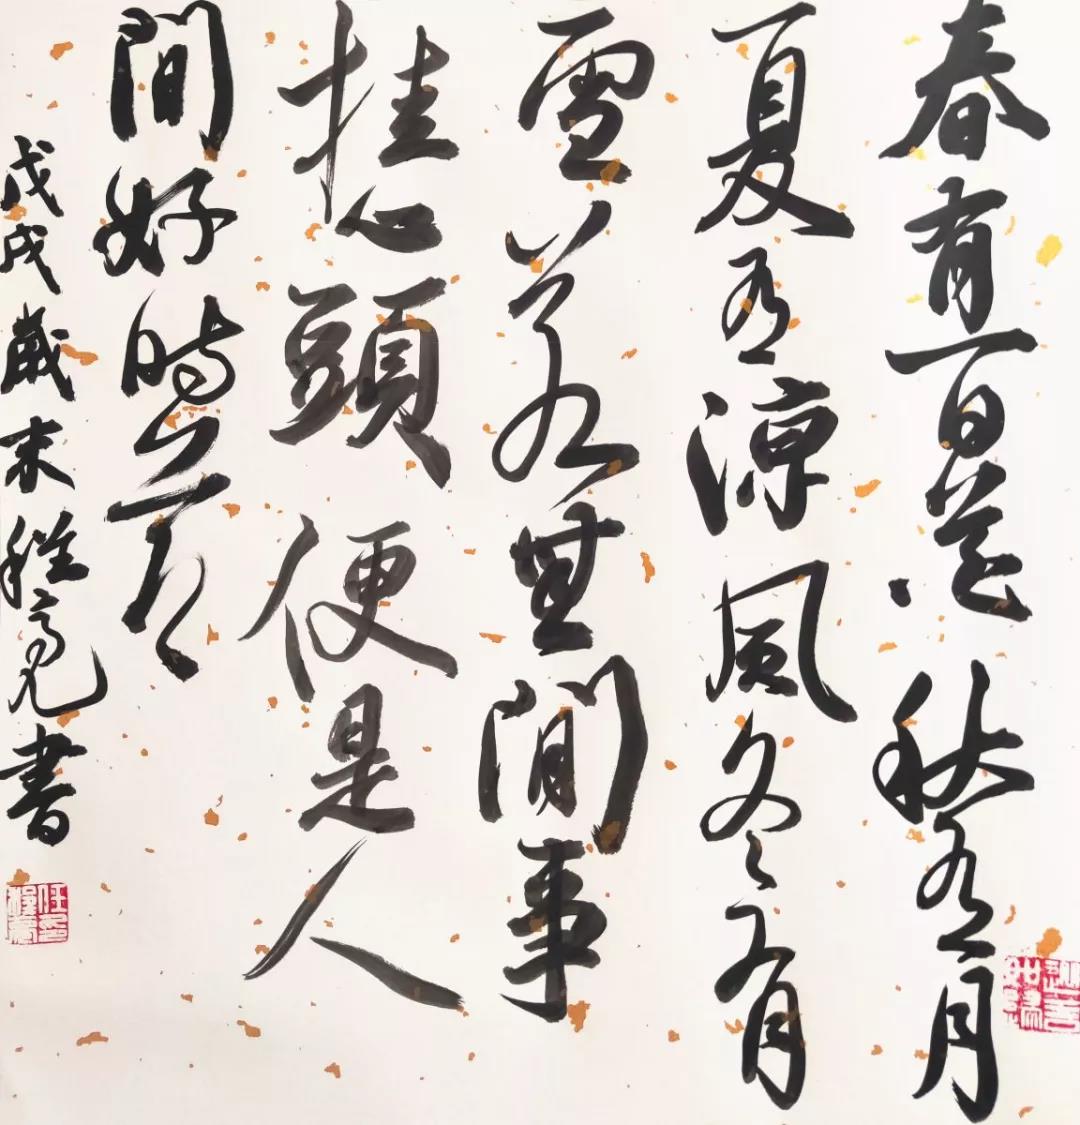 春有百花秋有月
夏有涼風冬有
雪若無閒事
挂心頭便是人
間好時節
戊戌歲末程亮書